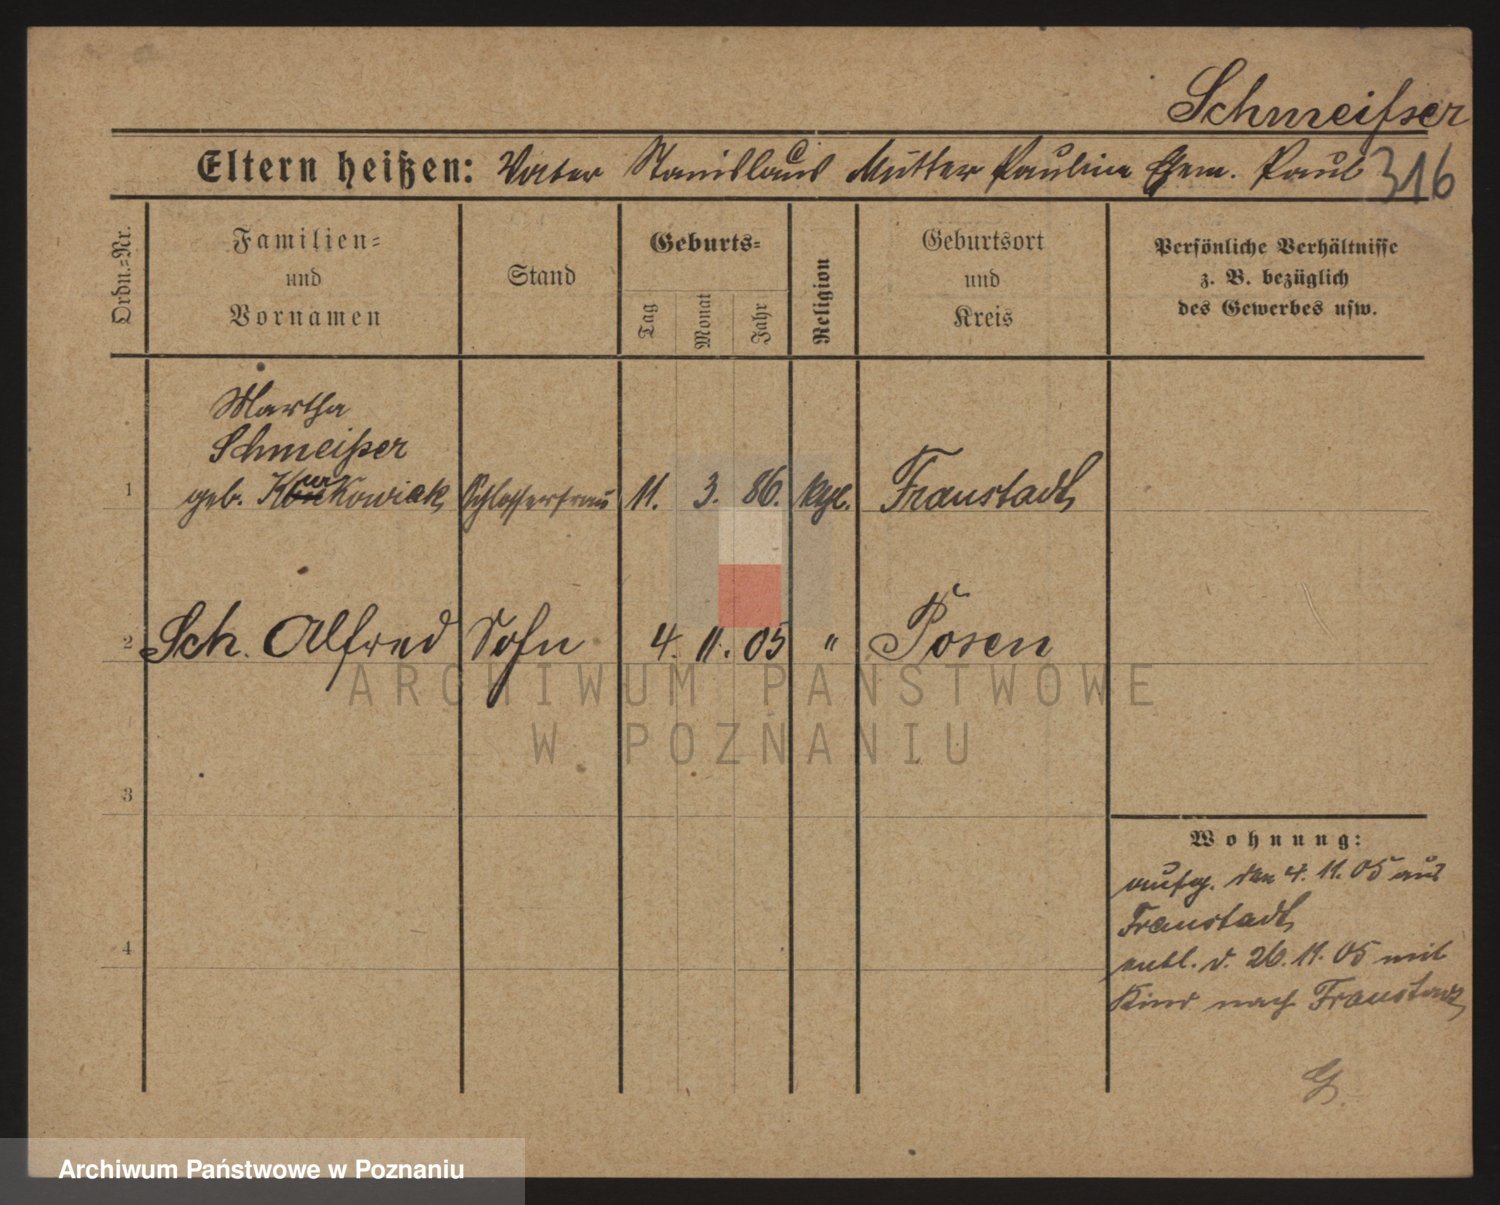 Schmeißer
Eltern heißen: Vater Stanislaus Mutter Pauline Ehem. Paul 316
Ordn.-Nr.
Familien-
und
Vornamen
Stand
Geburts-
Tag
Monat
Jahr
Religion
Geburtsort
und
Kreis
Persönliche Verhältnisse
z. B. bezüglich
des Gewerbes usw.
Martha
Schmeißer
1 geb. Kowiak Schlosserfrau 11. 3. 86. kath. Fraustadt
2 Sch. Alfred Sohn 4. 11. 05 " Posen
ARCHIWUM PAŃSTWOWE
W POZNANIU
3
Wohnung:
aufg. den 4. 11. 05 aus
Fraustadt
4
entl. d. 26. 11. 05 mit
Kind nach Fraustadt
G.
Archiwum Państwowe w Poznaniu